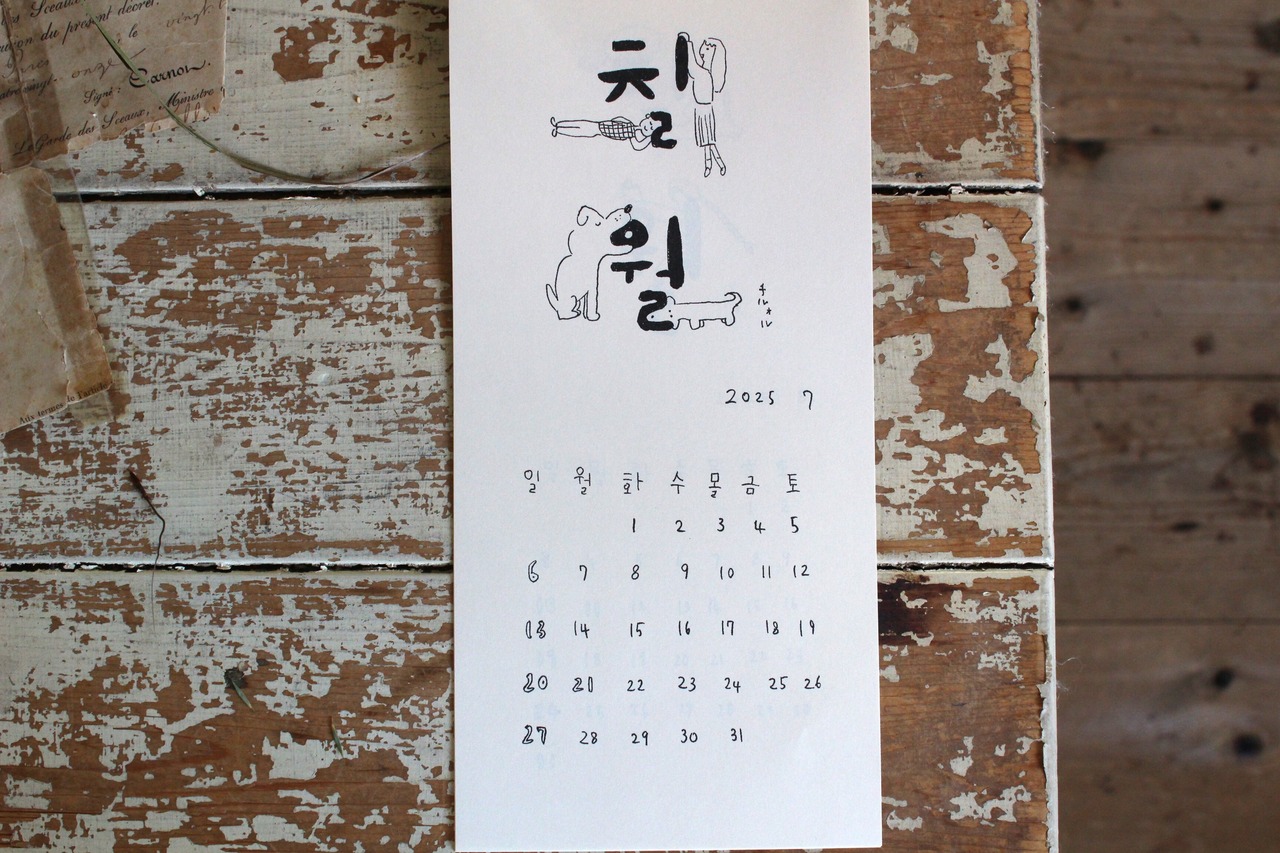 des Sceaux
du présent décret.
le vingt
onze
Signé : Carnot.
Le Garde des Sceaux, Ministre
termes de l'article
칠
월
チルォル
2025 7
일 월 화 수 몰 금 토
1 2 3 4 5
6 7 8 9 10 11 12
13 14 15 16 17 18 19
20 21 22 23 24 25 26
27 28 29 30 31